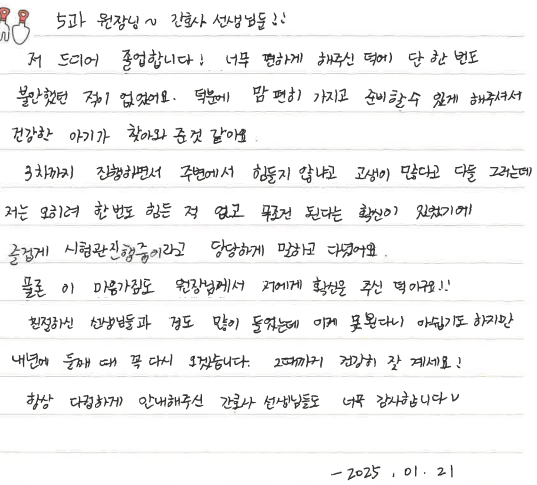 5과 원장님~ 간호사 선생님들!!
저 드디어 졸업합니다! 너무 편하게 해주신 덕에 단 한 번도
불안했던 적이 없었어요. 덕분에 맘 편히 가지고 준비할 수 있게 해주셔서
건강한 아기가 찾아와 준 것 같아요.
3차까지 진행하면서 주변에서 힘들지 않냐고 고생이 많다고 다들 그러는데
저는 오히려 한 번도 힘든 적 없고 무조건 된다는 확신이 있었기에
즐겁게 시험관 진행중이라고 당당하게 말하고 다녔어요.
물론 이 마음가짐도 원장님께서 저에게 확신을 주신 덕이구요!!
친절하신 선생님들과 정도 많이 들었는데 이제 못 본다니 아쉽기도 하지만
내년에 둘째 때 꼭 다시 오겠습니다. 그때까지 건강히 잘 계세요!
항상 다정하게 안내해주신 간호사 선생님들도 너무 감사합니다
- 2025. 01. 21